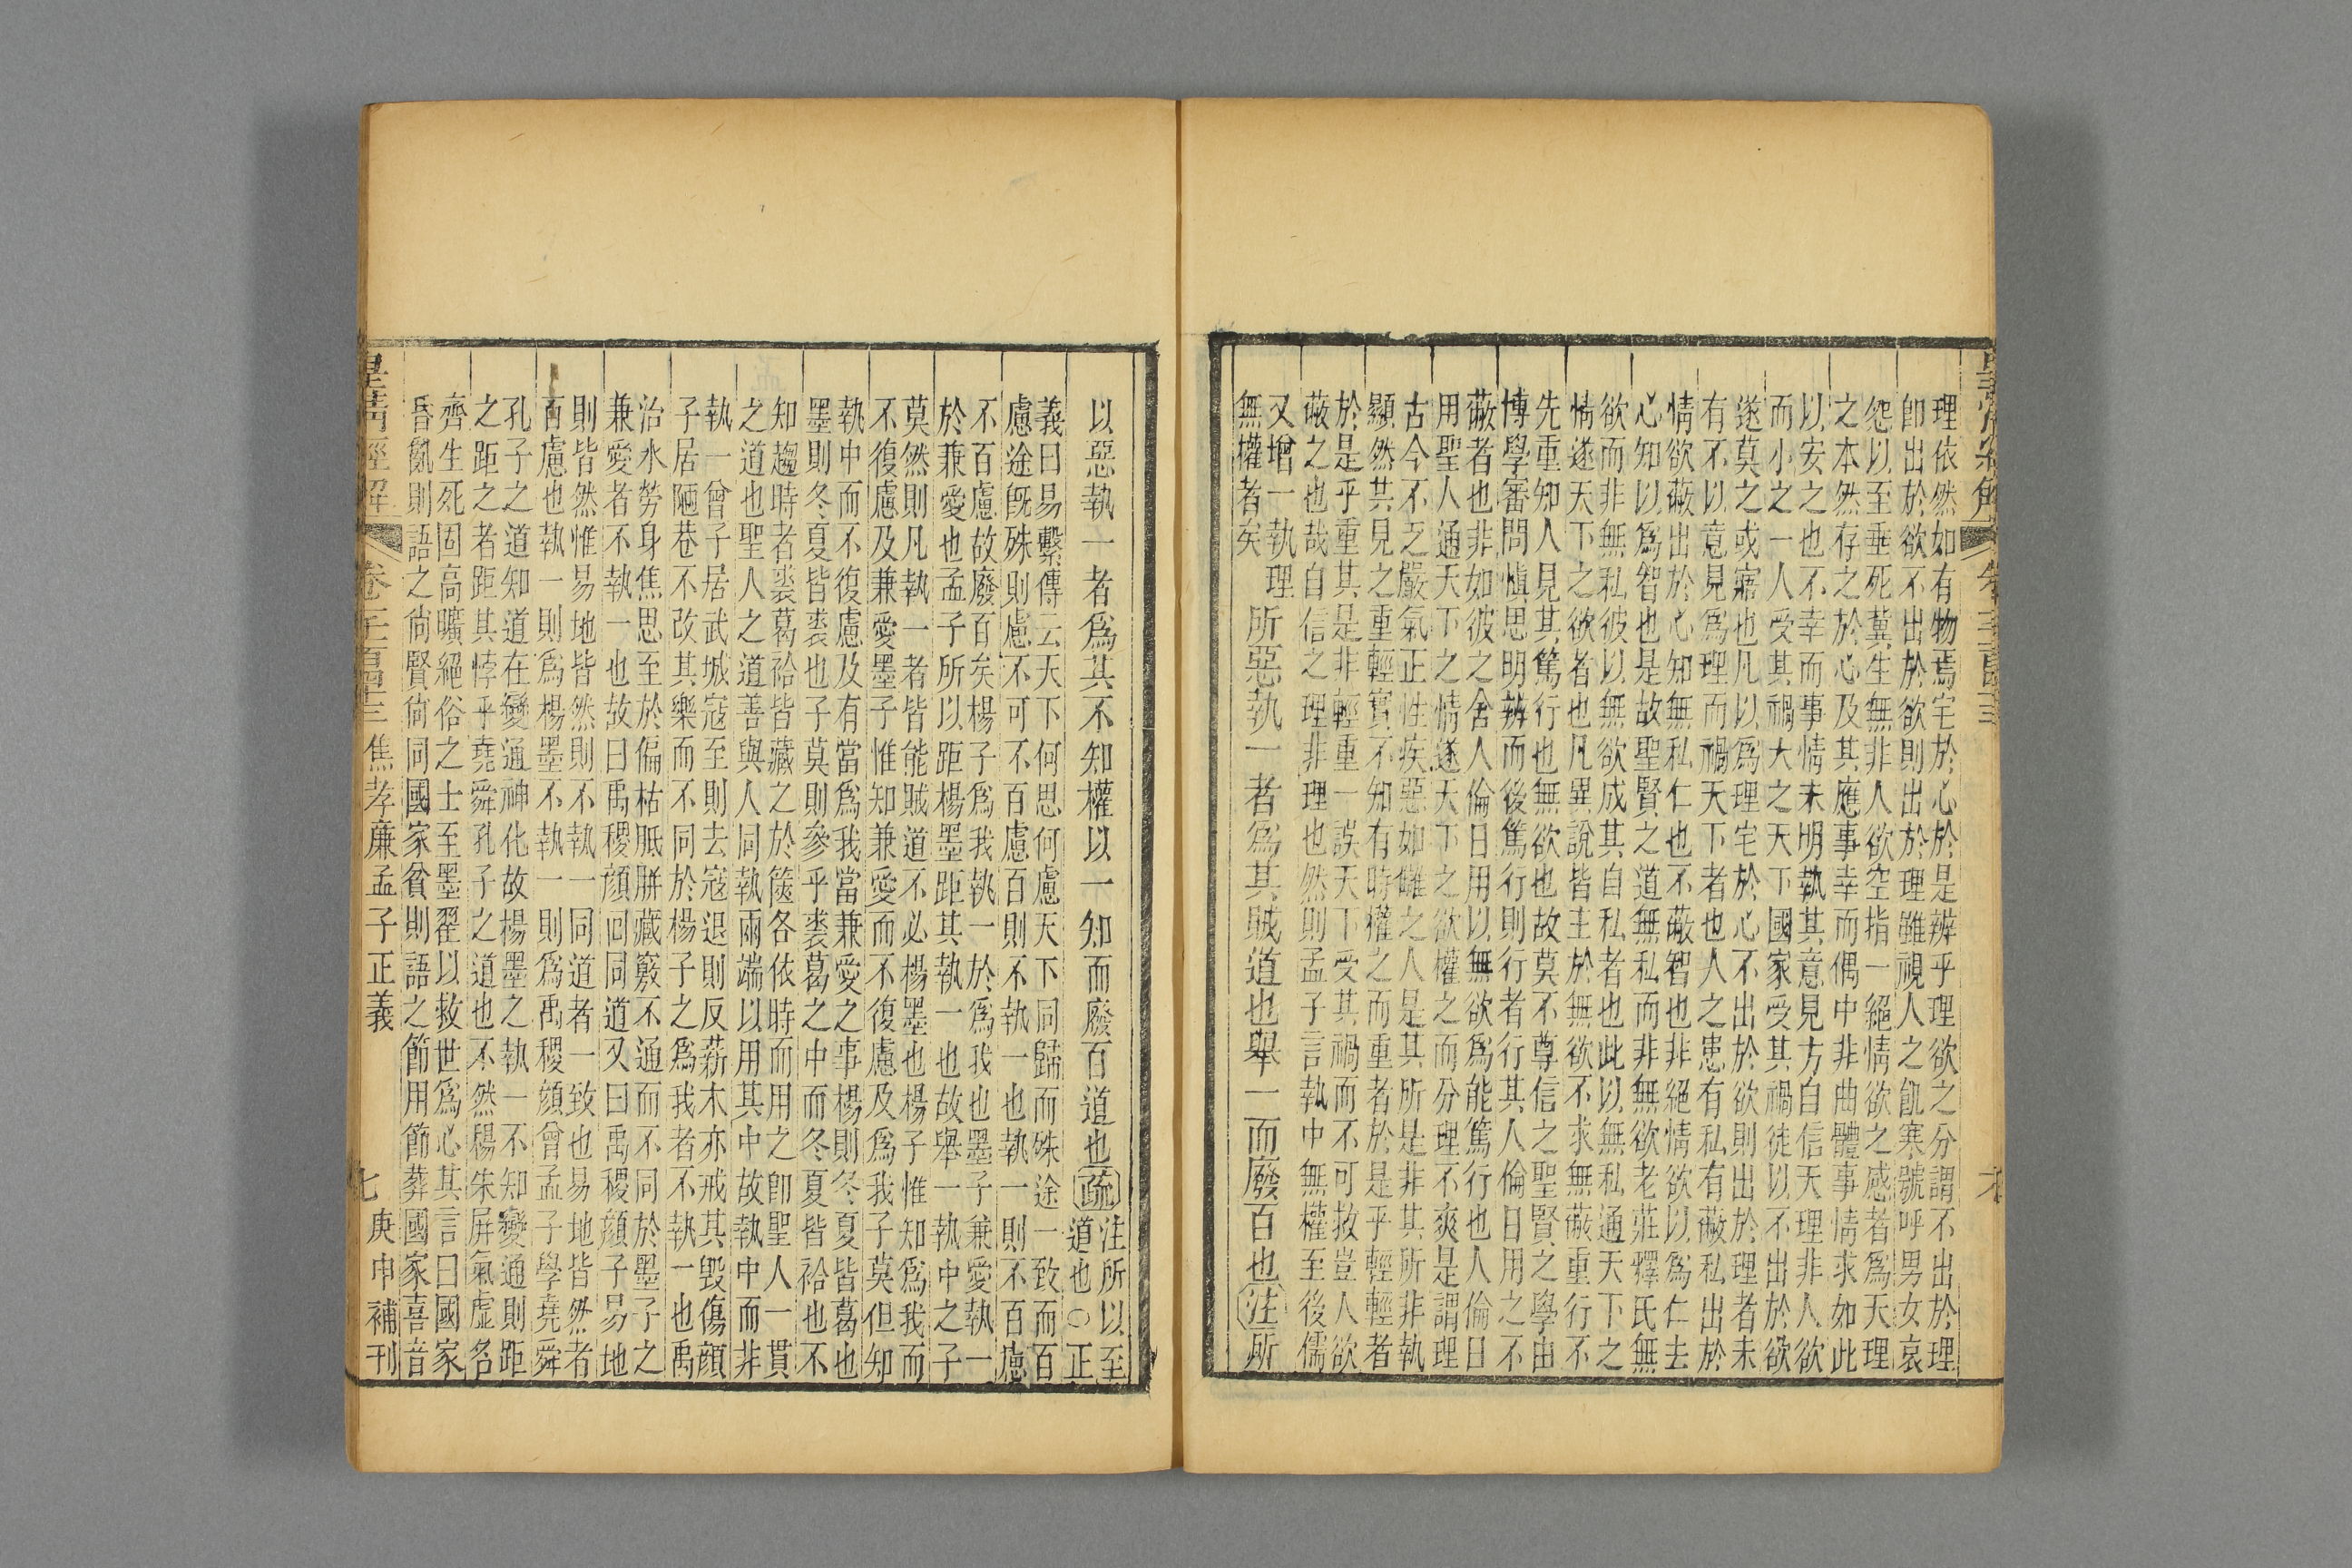 皇淸經解 卷 六
理依然如有物焉宅於心於是辨乎理欲之分謂不出於理
卽出於欲不出於欲則出於理雖視人之飢寒號呼男女哀
怨以至垂死冀生無非人欲空指一絕情欲之感者爲天理
之本然存之於心及其應事幸而偶中非曲體事情求如此
以安之也不幸而事情未明執其意見方自信天理非人欲
而小之一人受其禍大之天下國家受其禍徒以不出於欲
遂莫之或寤也凡以爲理宅於心不出於欲則出於理者未
有不以意見爲理而禍天下者也人之患有私有蔽私出於
情欲蔽出於心知無私仁也不蔽智也非絕情欲以爲仁去
心知以爲智也是故聖賢之道無私而非無欲老莊釋氏無
欲而非無私彼以無欲成其自私者也此以無私通天下之
情遂天下之欲者也凡異說皆主於無欲不求無蔽重行不
先重知人見其篤行也無欲也故莫不尊信之聖賢之學由
博學審問愼思明辨而後篤行則行者行其人倫日用之不
蔽者也非如彼之舍人倫日用以無欲爲能篤行也人倫日
用聖人通天下之情遂天下之欲權之而分理不爽是謂理
古今不乏嚴氣正性疾惡如讎之人是其所是非其所非執
顯然共見之重輕實不知有時權之而重者於是乎輕輕者
於是乎重其是非輕重一誤天下受其禍而不可救豈人欲
蔽之也哉自信之理非理也然則孟子言執中無權至後儒
又增一執理
無權者矣
所惡執一者爲其賊道也舉一而廢百也注所
以惡執一者爲其不知權以一知而廢百道也疏
注所以至
道也○正
義曰易繫傳云天下何思何慮天下同歸而殊途一致而百
慮途旣殊則慮不可不百慮百則不執一也執一則不百慮
不百慮故廢百矣楊子爲我執一於爲我也墨子兼愛執一
於兼愛也孟子所以距楊墨距其執一也故舉一執中之子
莫然則凡執一者皆能賊道不必楊墨也楊子惟知爲我而
不復慮及兼愛墨子惟知兼愛而不復慮及爲我子莫但知
執中而不復慮及有當爲我當兼愛之事楊則冬夏皆葛也
墨則冬夏皆裘也子莫則參乎裘葛之中而冬夏皆袷也不
知趨時者裘葛袷皆藏之於篋各依時而用之卽聖人一貫
之道也聖人之道善與人同執兩端以用其中故執中而非
執一曾子居武城寇至則去寇退則反薪木亦戒其毀傷顏
子居陋巷不改其樂而不同於楊子之爲我者不執一也禹
治水勞身焦思至於偏枯胝胼藏竅不通而不同於墨子之
兼愛者不執一也故曰禹稷顏回同道又曰禹稷顏子易地
則皆然惟易地皆然則不執一同道者一致也易地皆然者
百慮也執一則爲楊墨不執一則爲禹稷顏曾孟子學堯舜
孔子之道知道在變通神化故楊墨之執一不知變通則距
之距之者距其悖乎堯舜孔子之道也不然楊朱屏氣虛名
齊生死固高曠絕俗之士至墨翟以救世爲心其言曰國家
昏亂則語之尙賢尙同國家貧則語之節用節葬國家喜音
皇淸經解 卷三百 焦孝廉孟子正義 七 庚申補刊